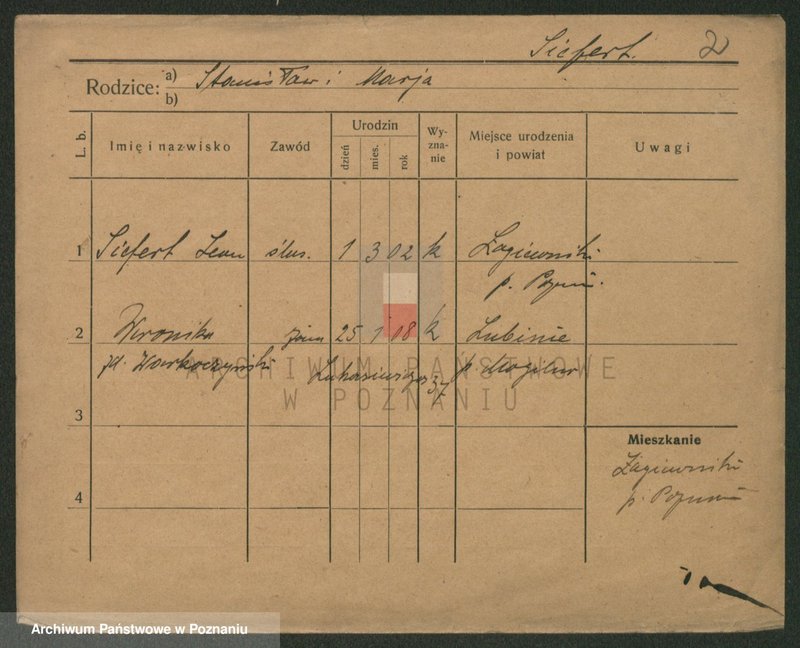 Siefert. 2
Rodzice: a) Stanisław i Marja
b)
L. b. Imię i nazwisko Zawód Urodzin dzień mies. rok Wy-zna-nie Miejsce urodzenia i powiat Uwagi
1 Siefert Leon ślus. 1 3 02 k Łagiewniki
p. Poznań.
2 Weronika żona 25 1 08 k Lubinie
p. Mogilno
37
3
Mieszkanie
Łagiewniki
p. Poznań
4
ARCHIWUM PAŃSTWOWE
W POZNANIU
Archiwum Państwowe w Poznaniu